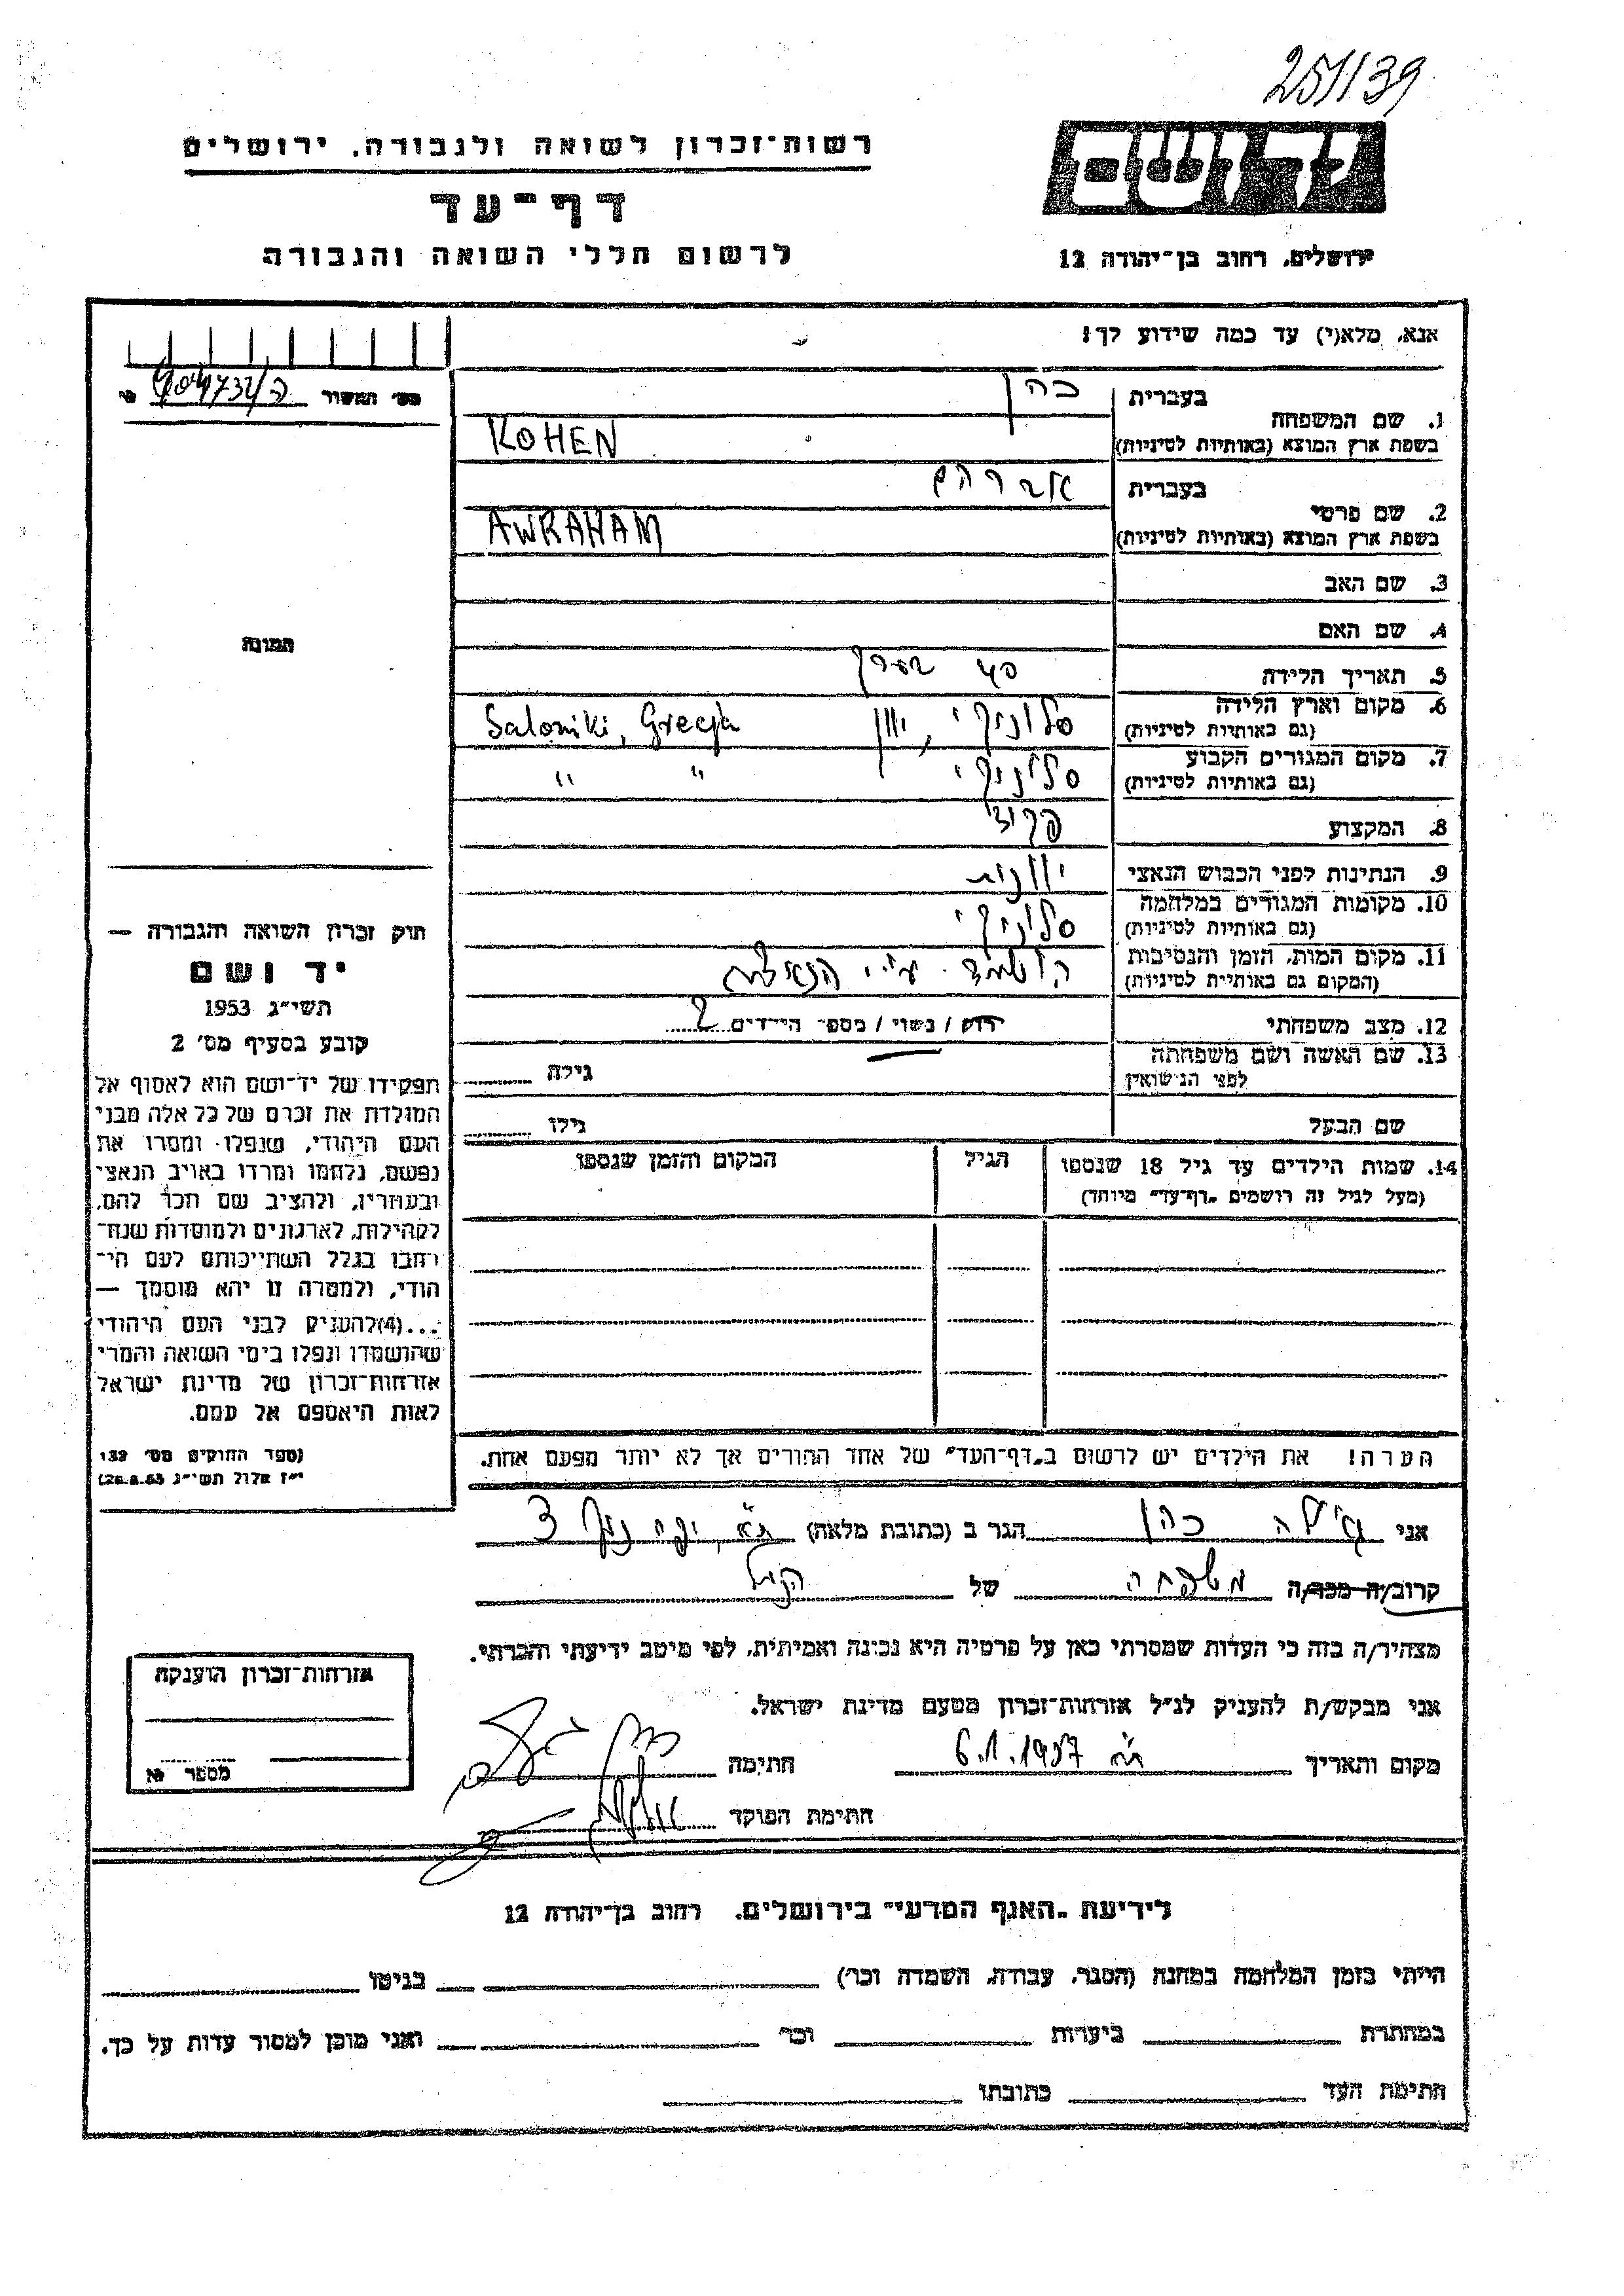 251139
רשות־זכרון לשואה ולגבורה, ירושלים
דף־עד
לרשום חללי השואה והגבורה
יד ושם
ירושלים, רחוב בן־יהודה 12
אנא, מלא(י) עד כמה שידוע לך!
מס׳ תאשור
1. שם המשפחה
בעברית כהן
בשפת ארץ המוצא (באותיות לטיניות) KOHEN
2. שם פרטי
בעברית אברהם
בשפת ארץ המוצא (באותיות לטיניות) AWRAHAM
3. שם האב
4. שם האם
5. תאריך הלידה 40 בערך
6. מקום וארץ הלידה
(גם באותיות לטיניות) סלוניקי, יוון Saloniki, Grecja
7. מקום המגורים הקבוע
(גם באותיות לטיניות) סלוניקי " "
8. המקצוע
9. הנתינות לפני הכבוש הנאצי יוונית
10. מקומות המגורים במלחמה
(גם באותיות לטיניות) סלוניקי
11. מקום המות, הזמן והנסיבות
(המקום גם באותיות לטיניות) הושמד ע"י הנאצים
12. מצב משפחתי רווק / נשוי / מספר הילדים 2
13. שם האשה ושם משפחתה
לפני הנישואין גילה
שם הבעל גילו
14. שמות הילדים עד גיל 18 שנספו הגיל המקום והזמן שנספו
(מעל לגיל זה רושמים „דף־עד״ מיוחד)
הערה! את הילדים יש לרשום ב„דף־העד״ של אחד ההורים אך לא יותר מפעם אחת.
תמונה
חוק זכרון השואה והגבורה —
יד ושם
תשי״ג 1953
קובע בסעיף מס׳ 2
תפקידו של יד־ושם הוא לאסוף אל
המולדת את זכרם של כל אלה מבני
העם היהודי, שנפלו ומסרו את
נפשם, נלחמו ומרדו באויב הנאצי
ובעוזריו, ולהציב שם וזכר להם,
לקהילות, לארגונים ולמוסדות שנח־
רבו בגלל השתייכותם לעם הי־
הודי, ולמטרה זו יהא מוסמך —
...(4)להעניק לבני העם היהודי
שהושמדו ונפלו בימי השואה והמרי
אזרחות־זכרון של מדינת ישראל
לאות היאספם אל עמם.
(ספר החוקים מס׳ 132
י״ז אלול תשי״ג 28.8.53)
אני כהן הגר ב (כתובת מלאה) 3
קרוב/ה מכר/ה משפחה של הנ"ל
מצהיר/ה בזה כי העדות שמסרתי כאן על פרטיה היא נכונה ואמיתית, לפי מיטב ידיעתי והכרתי.
אני מבקש/ת להעניק לנ״ל אזרחות־זכרון מטעם מדינת ישראל.
מקום והתאריך 6.1.1957 חתימה
חתימת הפוקד
אזרחות־זכרון הוענקה
מספר
לידיעת „האגף המדעי״ בירושלים, רחוב בן־יהודה 12
הייתי בזמן המלחמה במחנה (הסגר, עבודה, השמדה וכו׳) בגיטו
במחתרת ביערות וכו׳ ואני מוכן למסור עדות על כך.
חתימת העד כתובתו